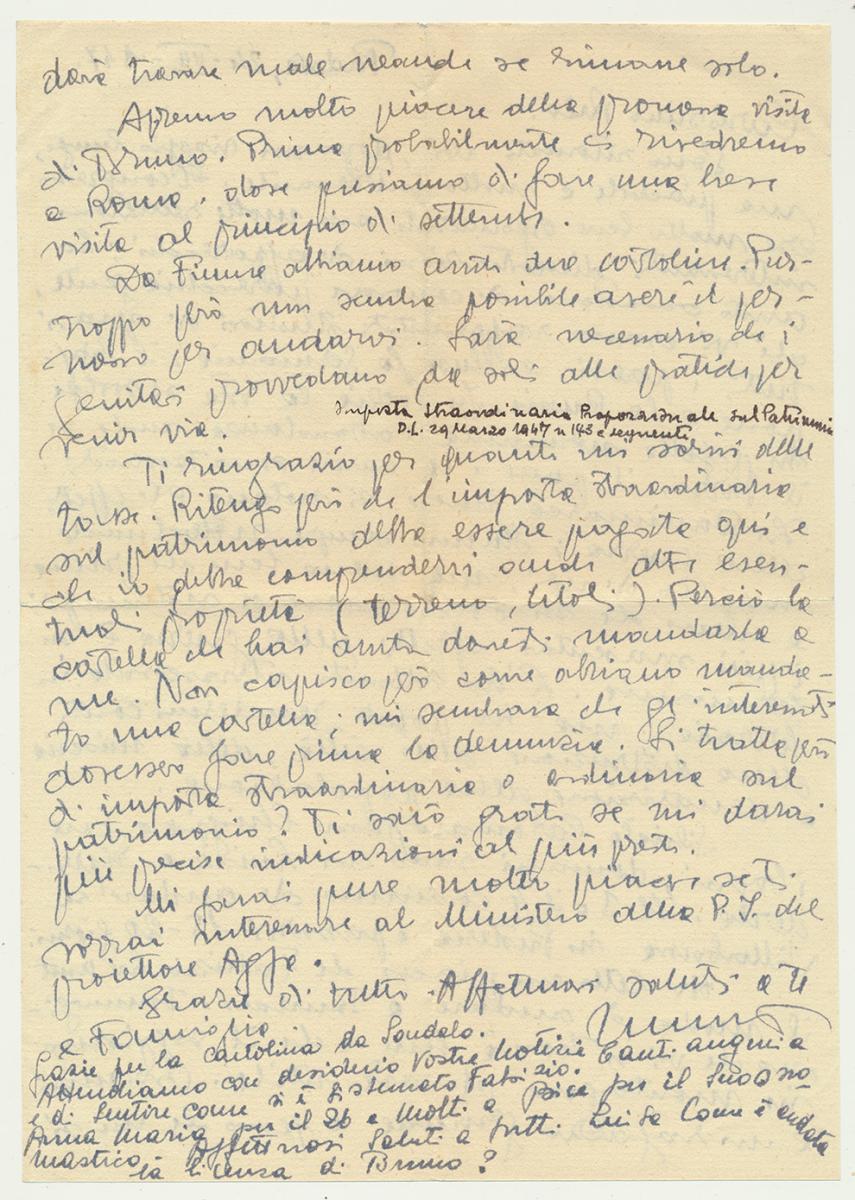 dovrà trovare male neanche se rimane solo.
Avremo molto piacere della promessa visita
di Bruno. Prima probabilmente ci rivedremo
a Roma, dove pensiamo di fare una breve
visita al principio di settembre.
Da Fiume abbiamo avuto due cartoline. Pur-
troppo però non sembra possibile avere il per-
messo per andarvi. Sarà necessario che i
genitori provvedano da soli alle pratiche per
venir via.
Imposta Straordinaria Proporzionale sul Patrimonio
D.L. 29 Marzo 1947 n 143 e seguenti
Ti ringrazio per quanto mi scrivi delle
tasse. Ritengo però che l'imposta straordinaria
sul patrimonio debba essere pagata qui e
che io debba comprendervi anche altre even-
tuali proprietà (terreno, titoli). Perciò la
cartella che hai avuto dovresti mandarla a
me. Non capisco però come abbiano manda-
to una cartella; mi sembrava che gl'interessati
dovessero fare prima la denunzia. Si tratta però
di imposta straordinaria o ordinaria sul
patrimonio? Ti sarò grato se mi darai
più precise indicazioni al più presto.
Mi farai pure molto piacere se ti
vorrai interessare al Ministero della P.I. del
proiettore Agfa.
Grazie di tutto. Affettuosi saluti a te
e Famiglia.
Grazie per la cartolina da
Attendiamo con desiderio Vostre Notizie
e di sentire come si è sistemato Fabrizio. Tanti auguri a
Anna Maria per il 26 e molti a per il Suo ono-
mastico. Affettuosi Saluti a tutti Luisa Come è andata
la licenza di Bruno?